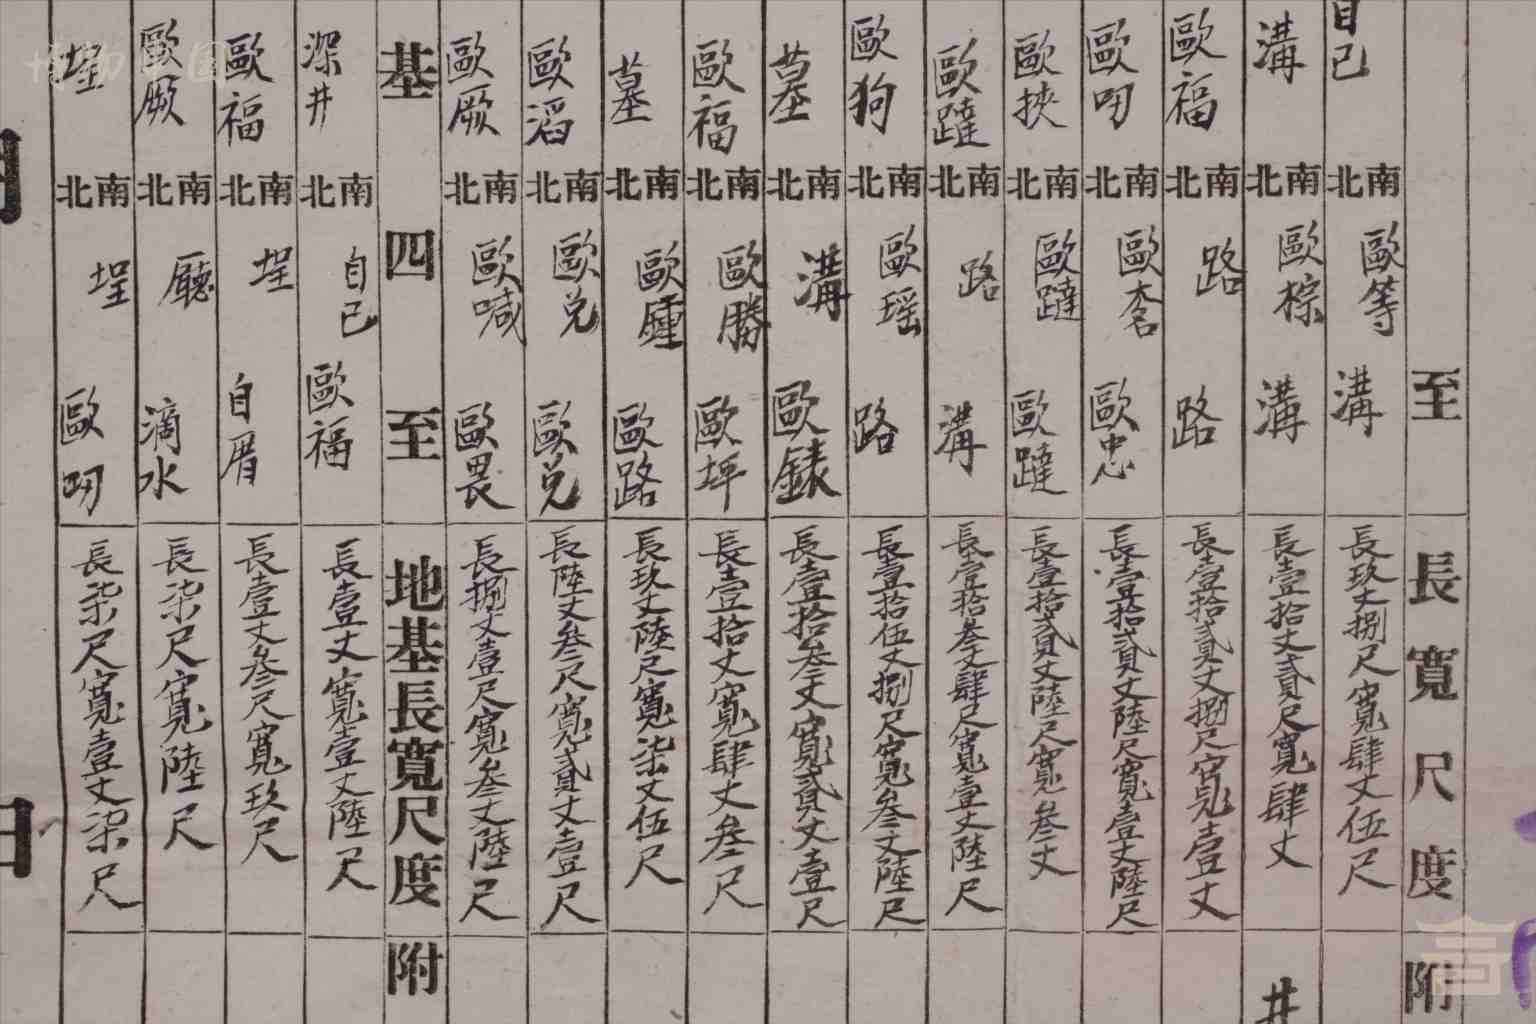 至 長寬尺度 附
自己 南北 歐等 溝 長玖丈捌尺寬肆丈伍尺
溝 南北 歐棕 溝 長壹拾丈貳尺寬肆丈 井
歐福 南北 路 路 長壹拾貳丈捌尺寬壹丈
歐叨 南北 歐 歐忠 長壹拾貳丈陸尺寬壹丈陸尺
歐挾 南北 歐躂 歐躂 長壹拾貳丈陸尺寬叁丈
歐躂 南北 路 溝 長壹拾叁丈肆尺寬壹丈陸尺
歐狗 南北 歐瑶 路 長壹拾伍丈捌尺寬叁丈陸尺
墓 南北 溝 歐錶 長壹拾叁丈寬貳丈壹尺
歐福 南北 歐勝 歐坪 長壹拾丈寬肆丈叁尺
墓 南北 歐 歐路 長玖丈陸尺寬柒丈伍尺
歐滔 南北 歐兑 歐兑 長陸丈叁尺寬貳丈壹尺
歐厥 南北 歐喊 歐畏 長捌丈壹尺寬叁丈陸尺
基四至 地基長寬尺度 附
深井 南北 自己 歐福 長壹丈寬壹丈陸尺
歐福 南北 埕 自厝 長壹丈叁尺寬玖尺
歐厥 南北 廳 滴水 長柒尺寬陸尺
埕 南北 埕 歐叨 長柒尺寬壹丈柒尺